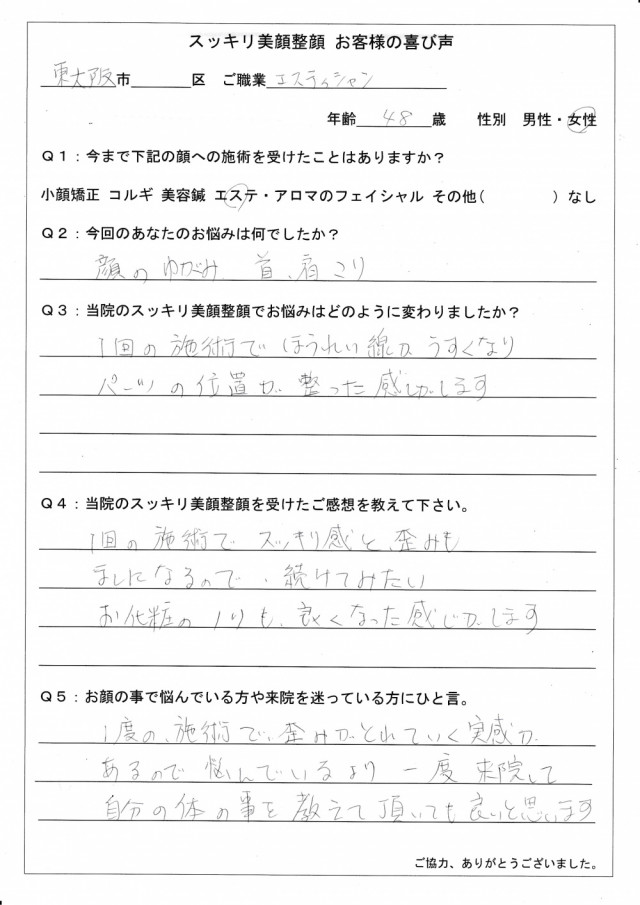 スッキリ美顔整顔 お客様の喜び声
東大阪市 区 ご職業 エステティシャン
年齢 48 歳 性別 男性・女性
Q1：今まで下記の顔への施術を受けたことはありますか？
小顔矯正 コルギ 美容鍼 エステ・アロマのフェイシャル その他( ) なし
Q2：今回のあなたのお悩みは何でしたか？
顔のゆがみ 首、肩こり
Q3：当院のスッキリ美顔整顔でお悩みはどのように変わりましたか？
1回の施術でほうれい線がうすくなり
パーツの位置が整った感じがします
Q4：当院のスッキリ美顔整顔を受けたご感想を教えて下さい。
1回の施術でスッキリ感と、歪みも
ましになるので、続けてみたい
お化粧のノリも、良くなった感じがします
Q5：お顔の事で悩んでいる方や来院を迷っている方にひと言。
1度の、施術で、歪みがとれていく実感が
あるので悩んでいるより一度来院して
自分の体の事を教えて頂いても良いと思います
ご協力、ありがとうございました。